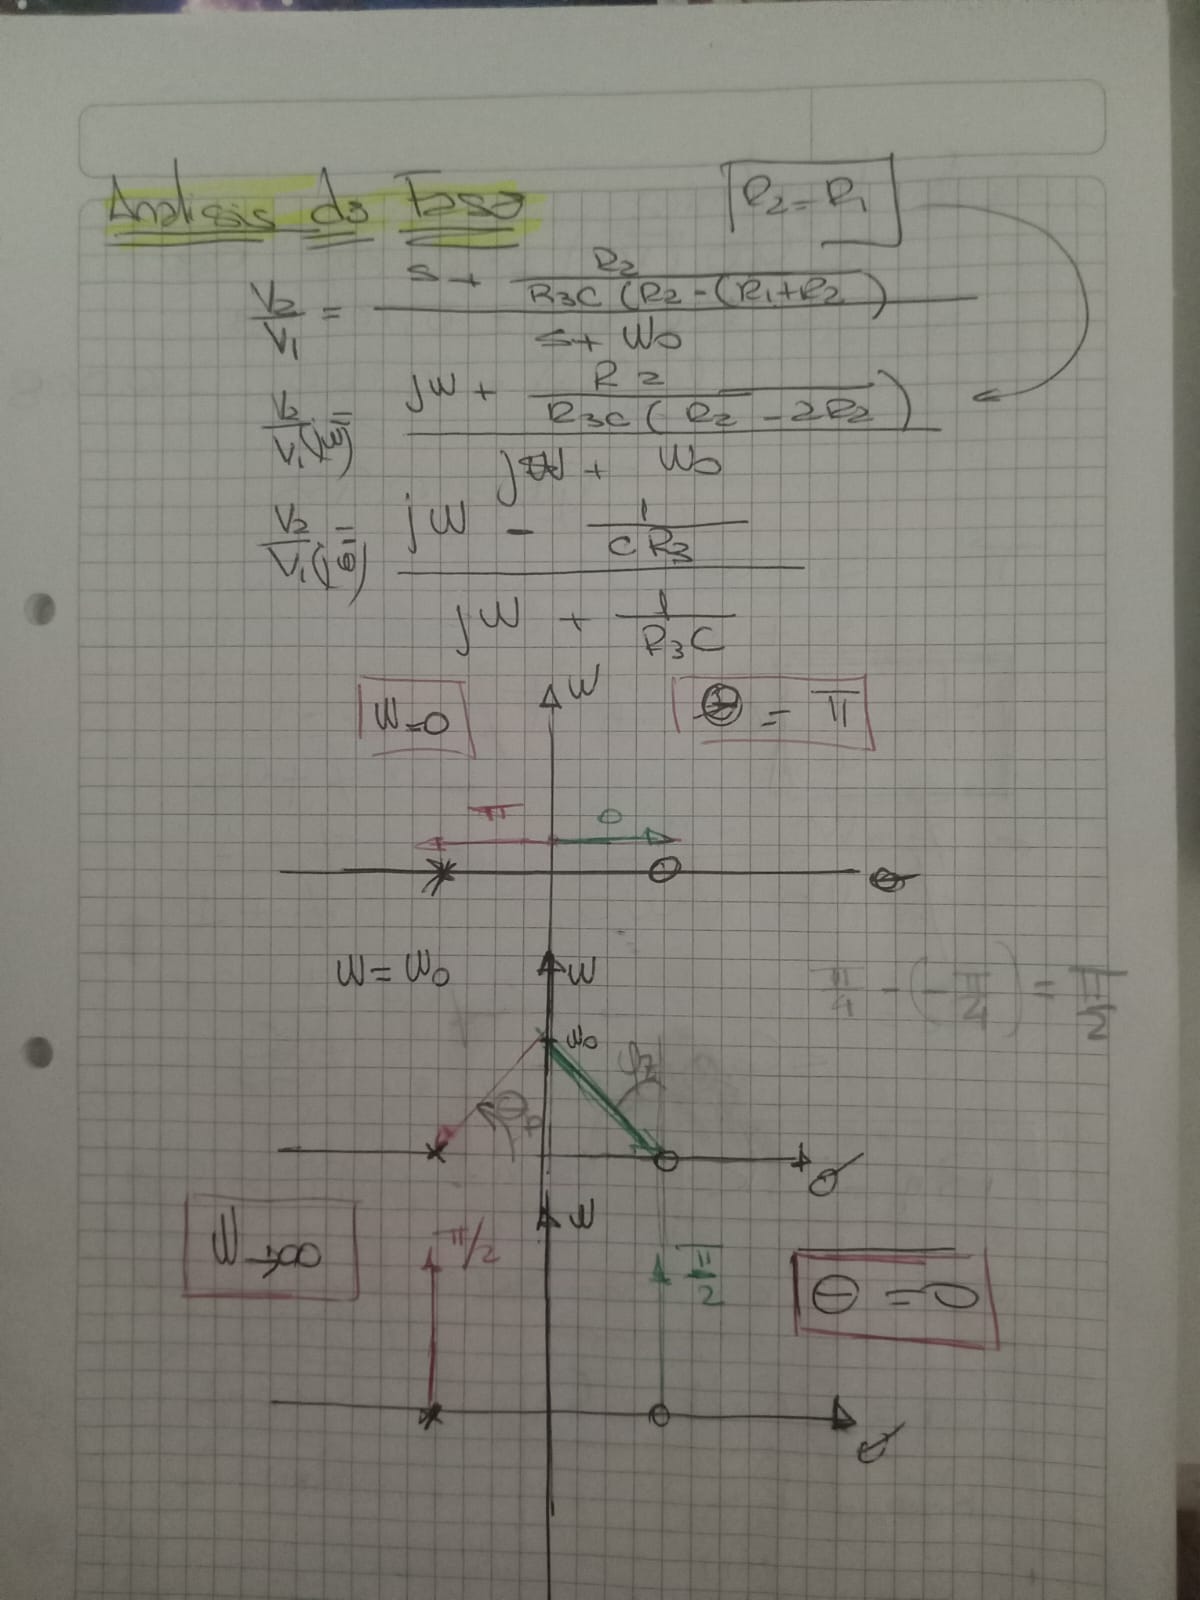 Analisis de Fase
R2 = R1
V2/V1 = (s + R2/(R3C (R2 - (R1+R2)))/(s + W0)
V2/V1(jw) = (jw + R2/(R3C (R2 - 2R2)))/(jw + W0)
V2/V1(jω) = (jw - 1/(CR3))/(jw + 1/(R3C))
W=0
W
Θ = π
π
0
σ
W = W0
W
π/4 - (-π/4) = π/2
W0
Θp
φz
σ
W→∞
π/2
W
π/2
Θ = 0
σ